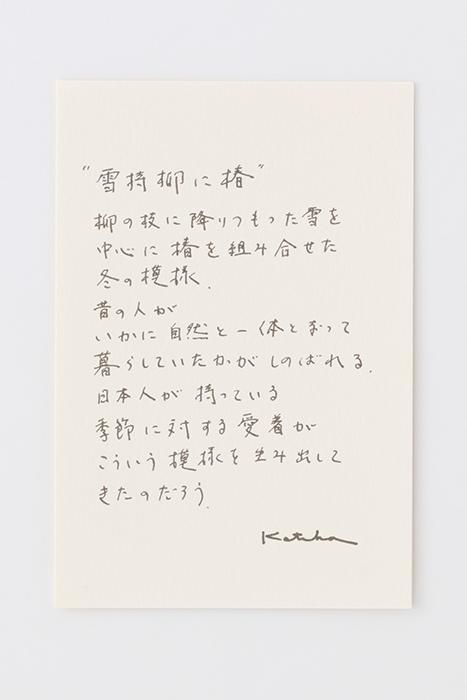 "雪持柳に椿"
柳の枝に降りつもった雪を
中心に 椿を組み合せた
冬の模様.
昔の人が
いかに自然と一体となって
暮らしていたかがしのばれる.
日本人が 持っている
季節に対する愛着が
こういう模様を生み出して
きたのだろう.